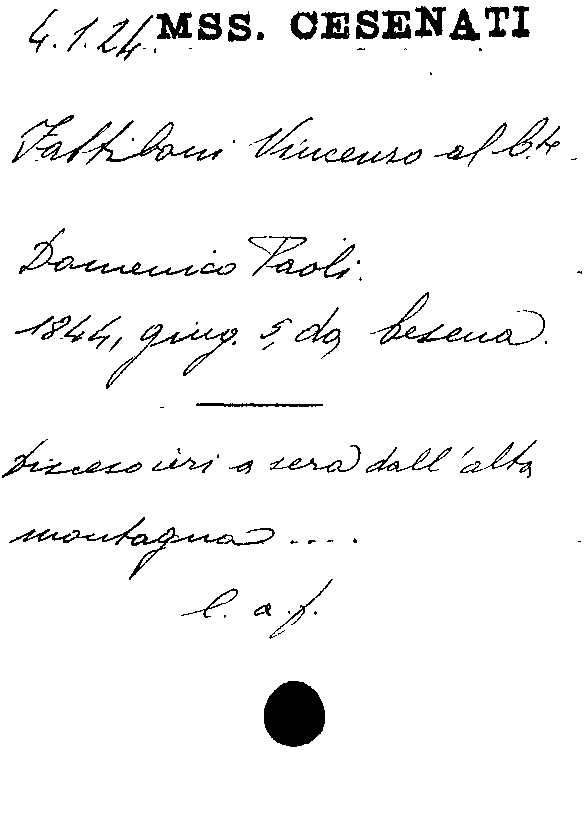 4.1.24. MSS. CESENATI
Fattiboni Vincenzo al C.te
Domenico Paoli.
1844, giug. 5, da Cesena.
Disceso ieri a sera dall'alta
montagna ....
l. a. f.